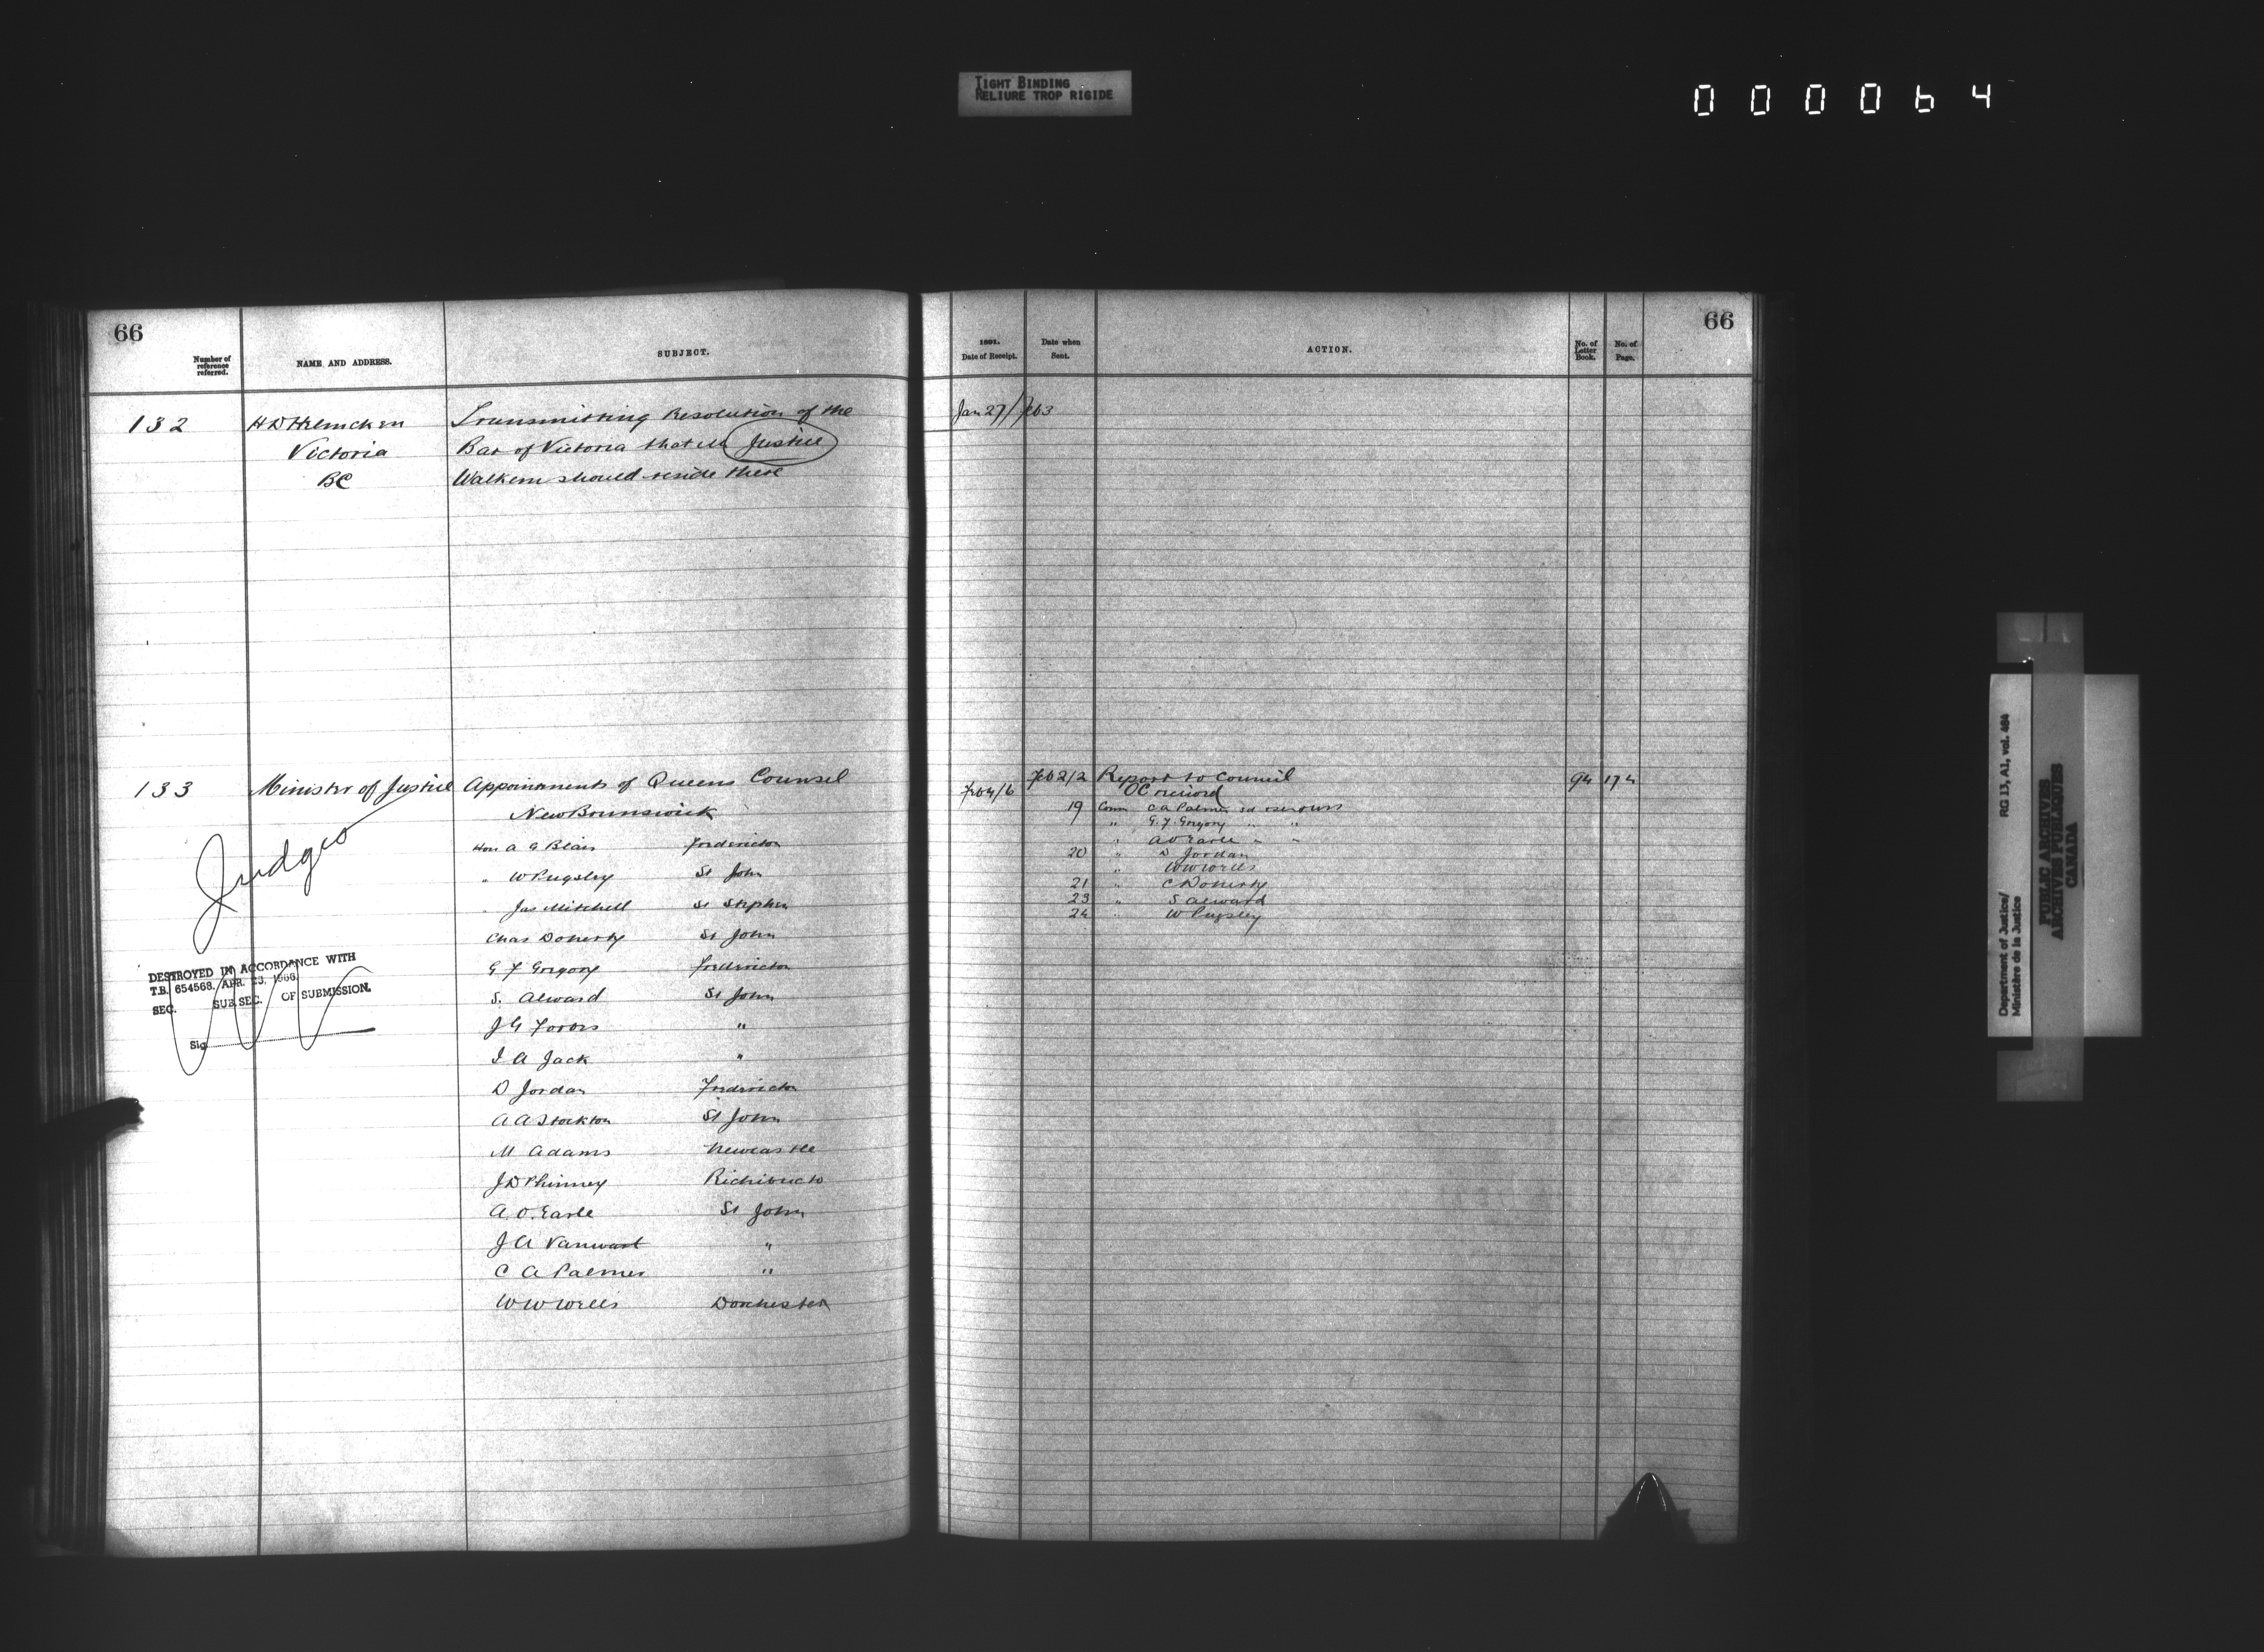 TIGHT BINDING
RELIURE TROP RIGIDE
000064
66
Number of reference referred.
NAME AND ADDRESS.
SUBJECT.
132
H D Helmcken
Victoria
BC
Transmitting Resolution of the
Bar of Victoria that Mr Justice
Walkem should reside there
133
Minister of Justice
Judges
Appointments of Queens Counsel
New Brunswick
Hon A G Blair Fredericton
" W Pugsley St John
" Jas Mitchell St Stephen
Chas Doherty St John
G F Gregory Fredericton
S. Alward St John
J G Forbes "
I A Jack "
D Jordan Fredericton
A A Stockton St John
M Adams Newcastle
J D Phinney Richibucto
A. O. Earle St John
J A Vanwart "
C A Palmer "
W W Wells Dorchester
DESTROYED IN ACCORDANCE WITH
T.B. 654568. APR. 23. 1966.
SEC. SUB.SEC. OF SUBMISSION.
Sig
66
1891.
Date of Receipt.
Date when Sent.
ACTION.
No. of Letter Book.
No. of Page.
Jan 27/ Feb 3
Feb 4/6 Feb 2/2 Report to Council 94 174
OC
19 Comn C A Palmer
" G. F. Gregory " "
" A O Earle " "
20 " D Jordan
" W W Wells
21 " C Doherty
23 " S Alward
24 " W Pugsley
Department of Justice/
Ministère de la Justice
RG 13, A1, vol. 464
PUBLIC ARCHIVES
ARCHIVES PUBLIQUES
CANADA